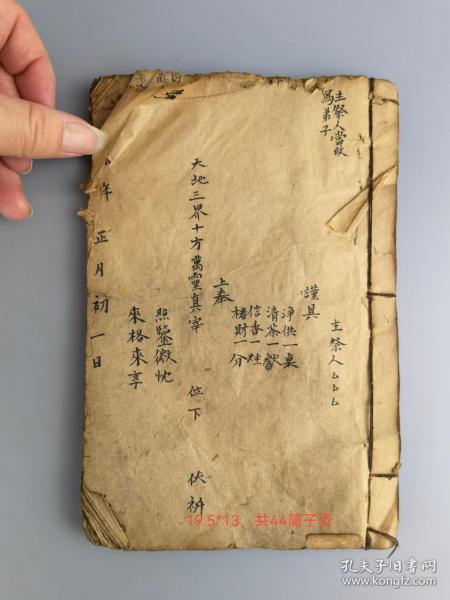 主祭人當故
寫弟子
主祭人厶厶厶
謹具
净供一桌
清茶一獻
信香一炷
楮財一分
上奉
天地三界十方萬靈真宰 位下 伏祈
照鑒微忱
來格來享
年 正月初一日
19.5*13、共44筒子页
孔夫子旧书网
www.kongfz.com